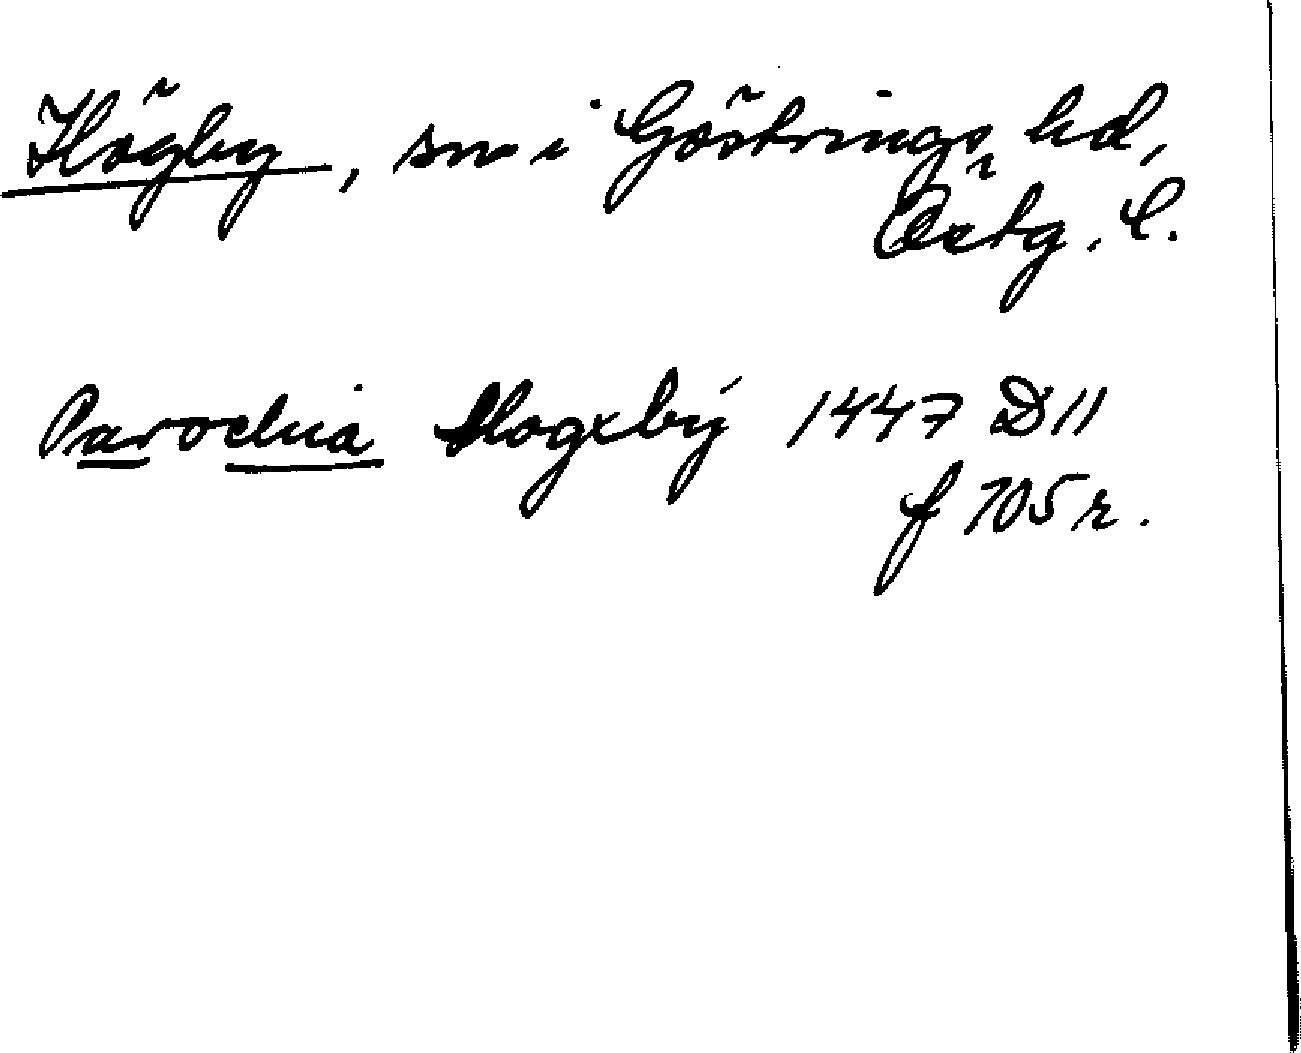 Högby, sn i Göstrings hd,
Östg. l.
Parochia Hogxby 1447 D11
f 105 r.